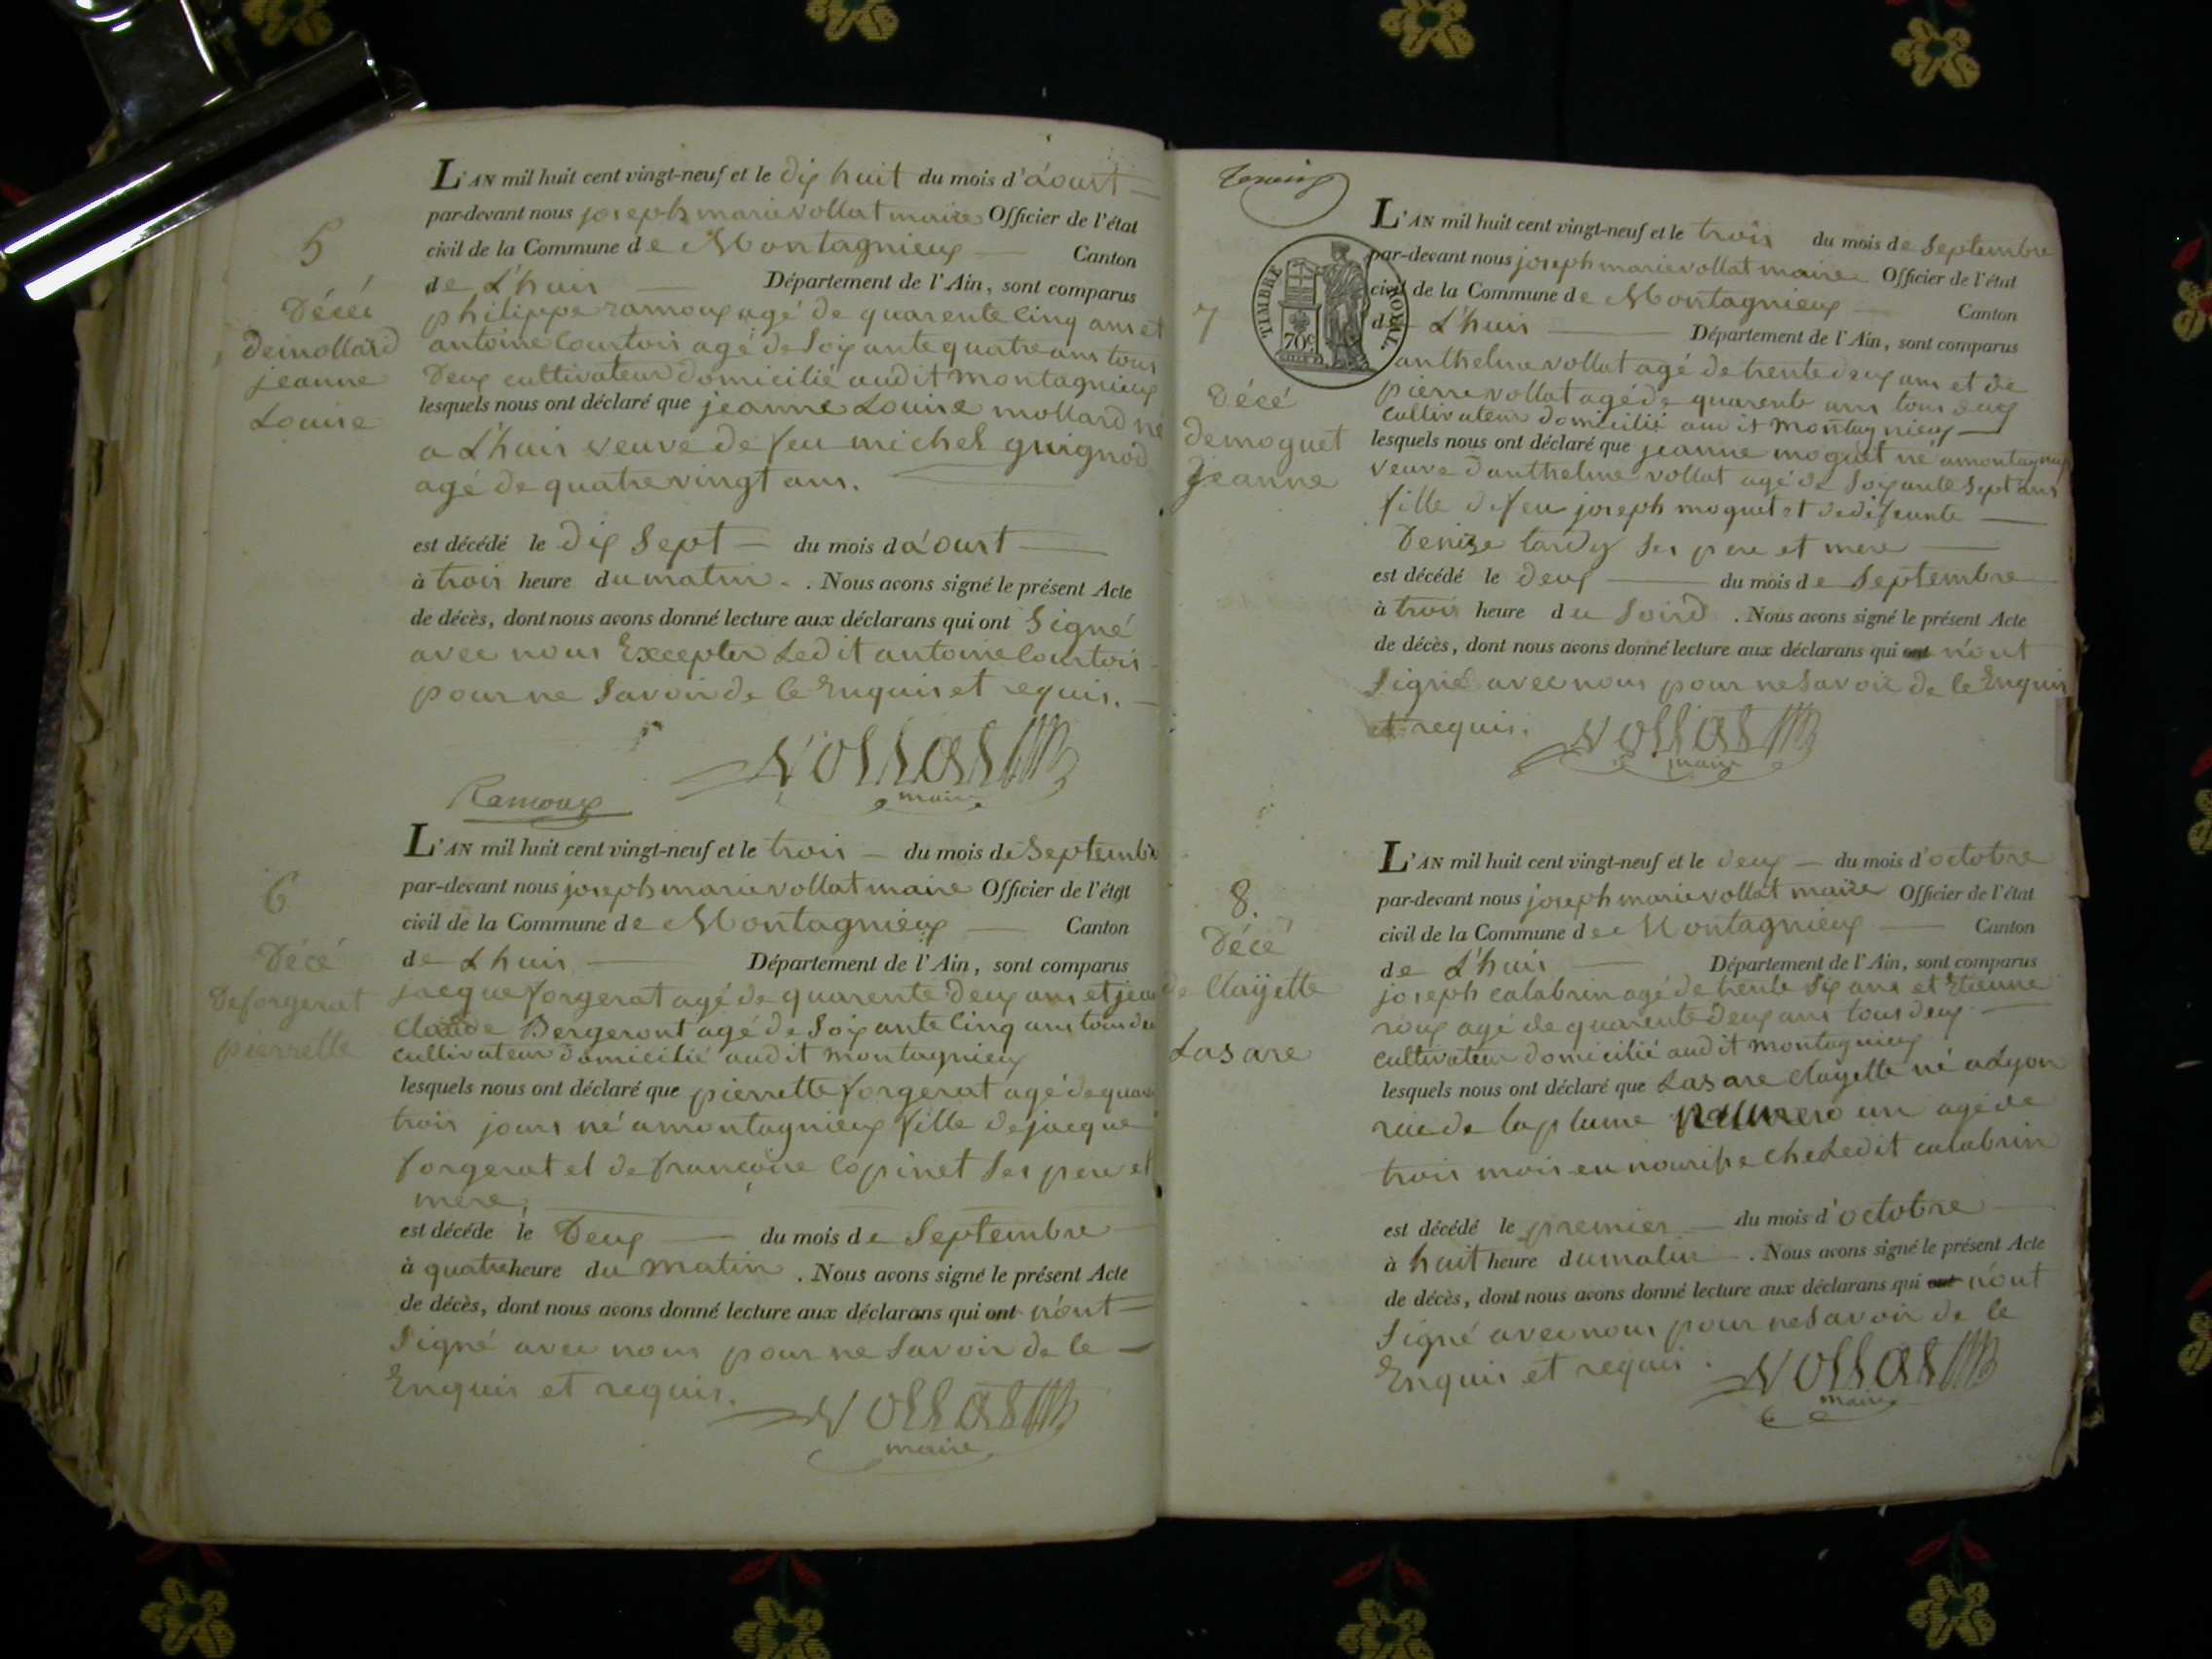 5
Décéé
demollard
jeanne
Louise
L'AN mil huit cent vingt-neuf et le dix huit du mois d'aoust
par-devant nous joseph marie vollat maire Officier de l'état
civil de la Commune de Montagnieux Canton
de L'huis Département de l'Ain, sont comparus
philippe ramoux agé de quarente cinq ans et
antoine Courtois agé de Soixante quatre ans tous
Deux cultivateur domicilié audit montagnieux
lesquels nous ont déclaré que jeanne Louise mollard né
a L'huis veuve de feu michel guignod
agé de quatre vingt ans.
est décédé le dix Sept du mois d'aoust
à trois heure du matin. Nous avons signé le présent Acte
de décès, dont nous avons donné lecture aux déclarans qui ont Signé
avec nous Excepter Ledit antoine Courtois
pour ne Savoir de ce Enquis et requis.
Vollat
maire
Ramoux
6
Décé
Deforgerat
pierrette
L'AN mil huit cent vingt-neuf et le trois du mois de Septembre
par-devant nous joseph marie vollat maire Officier de l'état
civil de la Commune de Montagnieux Canton
de Lhuis Département de l'Ain, sont comparus
jacque forgerat agé de quarente Deux ans et jean
Claude Bergeront agé de Soixante Cinq ans tous deu
cultivateur domicilié audit montagnieux
lesquels nous ont déclaré que pierrette forgerat agé de
trois jours né a montagnieux fille de jacque
forgerat et de françoise Copinet Ses pere et
mere,
est décéde le Deux du mois de Septembre
à quatre heure du matin. Nous avons signé le présent Acte
de décès, dont nous avons donné lecture aux déclarans qui ont n'ont
Signé avec nous pour ne Savoir de ce
Enquis et requis.
Vollat
maire
7
Décé
demoquet
jeanne
TIMBRE ROYAL.
70c
L'AN mil huit cent vingt-neuf et le trois du mois de Septembre
par-devant nous joseph marie vollat maire Officier de l'état
civil de la Commune de Montagnieux Canton
de L'huis Département de l'Ain, sont comparus
anthelme vollat agé de trente deux ans et de
pierre vollat agé de quarente ans tous deux
cultivateur domicilié audit montagnieux
lesquels nous ont déclaré que jeanne moquet né a montagnieux
veuve d'anthelme vollat agé de Soixante Sept ans
fille de feu joseph moquet et de defeunte
Denize tardy Ses pere et mere
est décédé le deux du mois de Septembre
à trois heure du Soird. Nous avons signé le présent Acte
de décès, dont nous avons donné lecture aux déclarans qui ont n'ont
Signé avec nous pour ne Savoir de ce Enquis
et requis.
Vollat
maire
8.
Décé
de Clayette
Lasare
L'AN mil huit cent vingt-neuf et le deux du mois d'octobre
par-devant nous joseph marie vollat maire Officier de l'état
civil de la Commune de Montagnieux Canton
de L'huis Département de l'Ain, sont comparus
joseph calabrin agé de trente Six ans et Etienne
roux agé de quarente deux ans tous deux
cultivateur domicilié audit montagnieux
lesquels nous ont déclaré que Lasare Clayette né a Lyon
rue de la plume numero un agé de
trois mois en nourisse che Ledit calabrin
est décédé le premier du mois d'octobre
à huit heure du matin. Nous avons signé le présent Acte
de décès, dont nous avons donné lecture aux déclarans qui ont n'ont
Signé avec nous pour ne Savoir de ce
Enquis et requis.
Vollat
maire